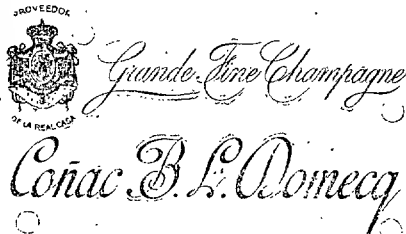 PROVEEDOR
DE LA REAL CASA
Grande Fine Champagne
Coñac B. L. Domecq